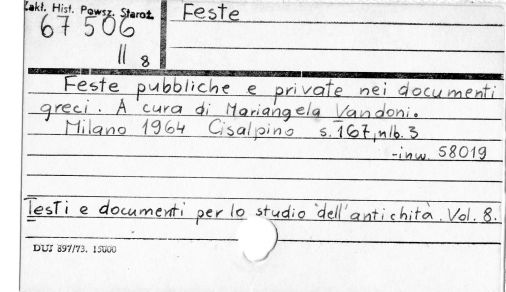 Zakł. Hist. Powsz. Staroż.
67 506
II 8
Feste
Feste pubbliche e private nei documenti
greci. A cura di Mariangela Vandoni.
Milano 1964 Cisalpino s. 167, nlb. 3
-inw. 58019
Testi e documenti per lo studio dell'antichità. Vol. 8.
DUJ 897/73. 15000